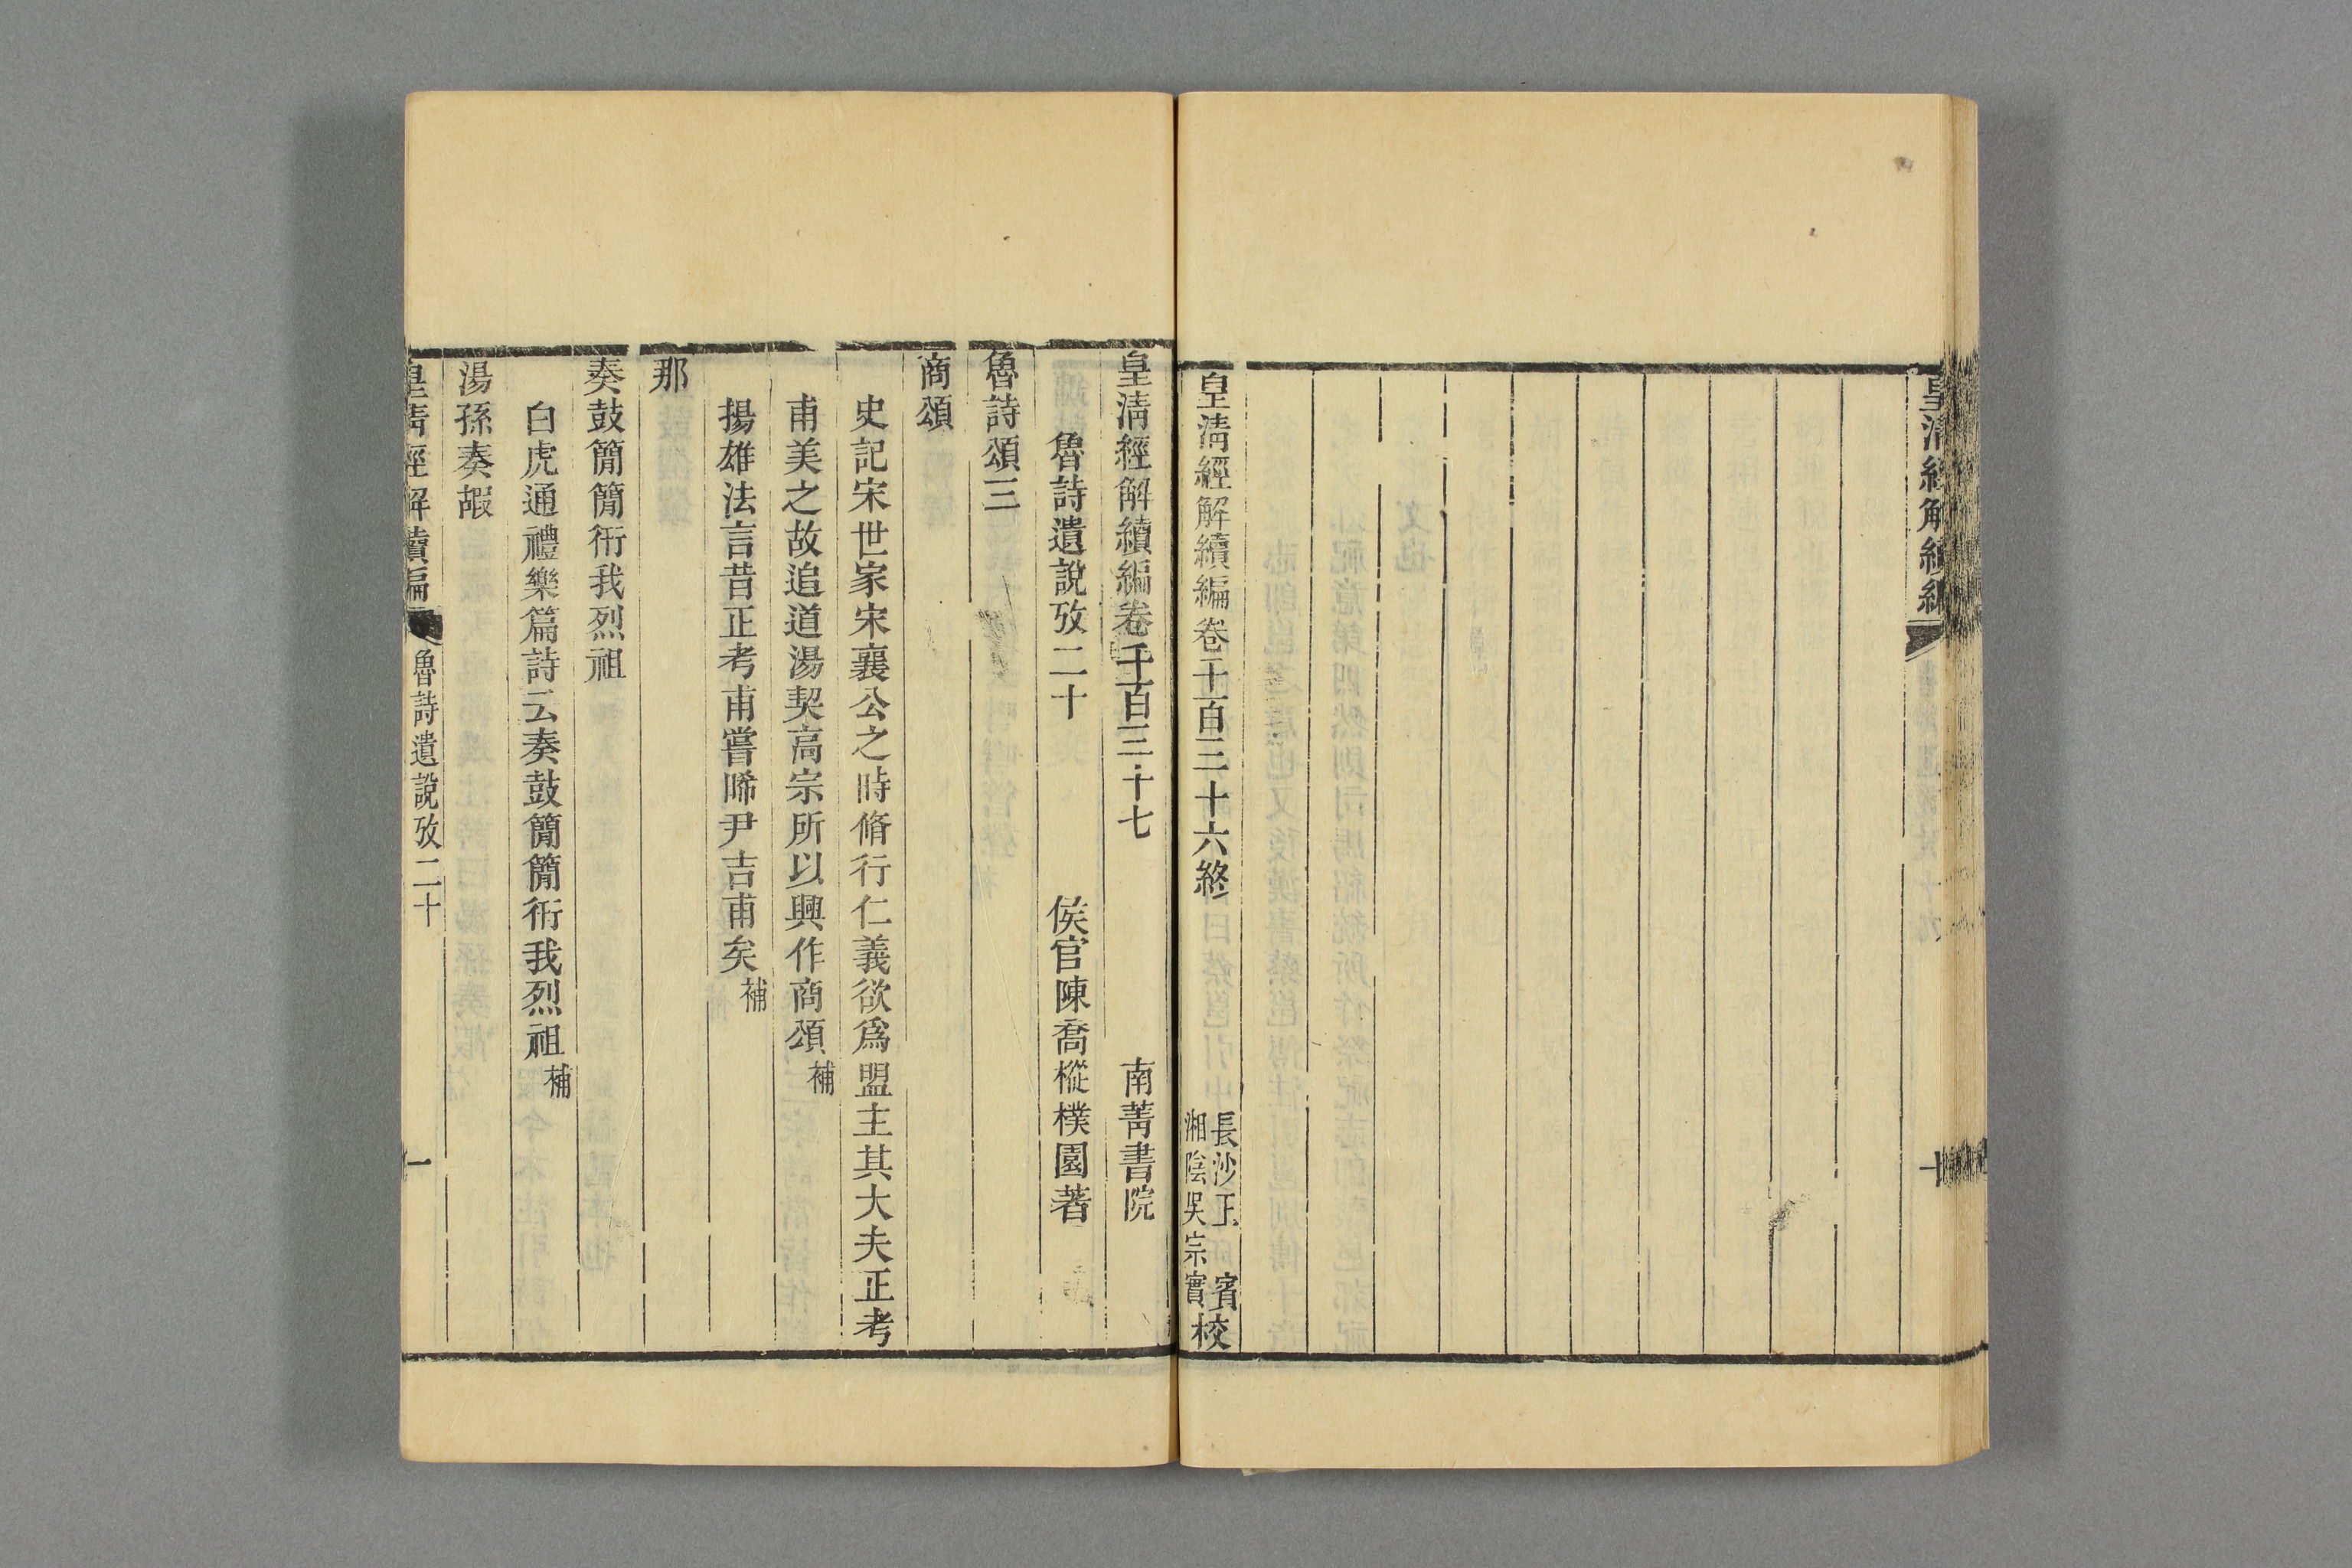 皇清經解續編
十
皇清經解續編卷千百三十六終
長沙王 賓
湘陰吳宗實校
皇清經解續編卷千百三十七 南菁書院
魯詩遺說攷二十 侯官陳喬樅樸園著
魯詩頌三
商頌
史記宋世家宋襄公之時脩行仁義欲爲盟主其大夫正考
甫美之故追道湯契高宗所以興作商頌補
揚雄法言昔正考甫嘗睎尹吉甫矣補
那
奏鼓簡簡衎我烈祖
白虎通禮樂篇詩云奏鼓簡簡衎我烈祖補
湯孫奏嘏
皇清經解續編 魯詩遺說攷二十 一